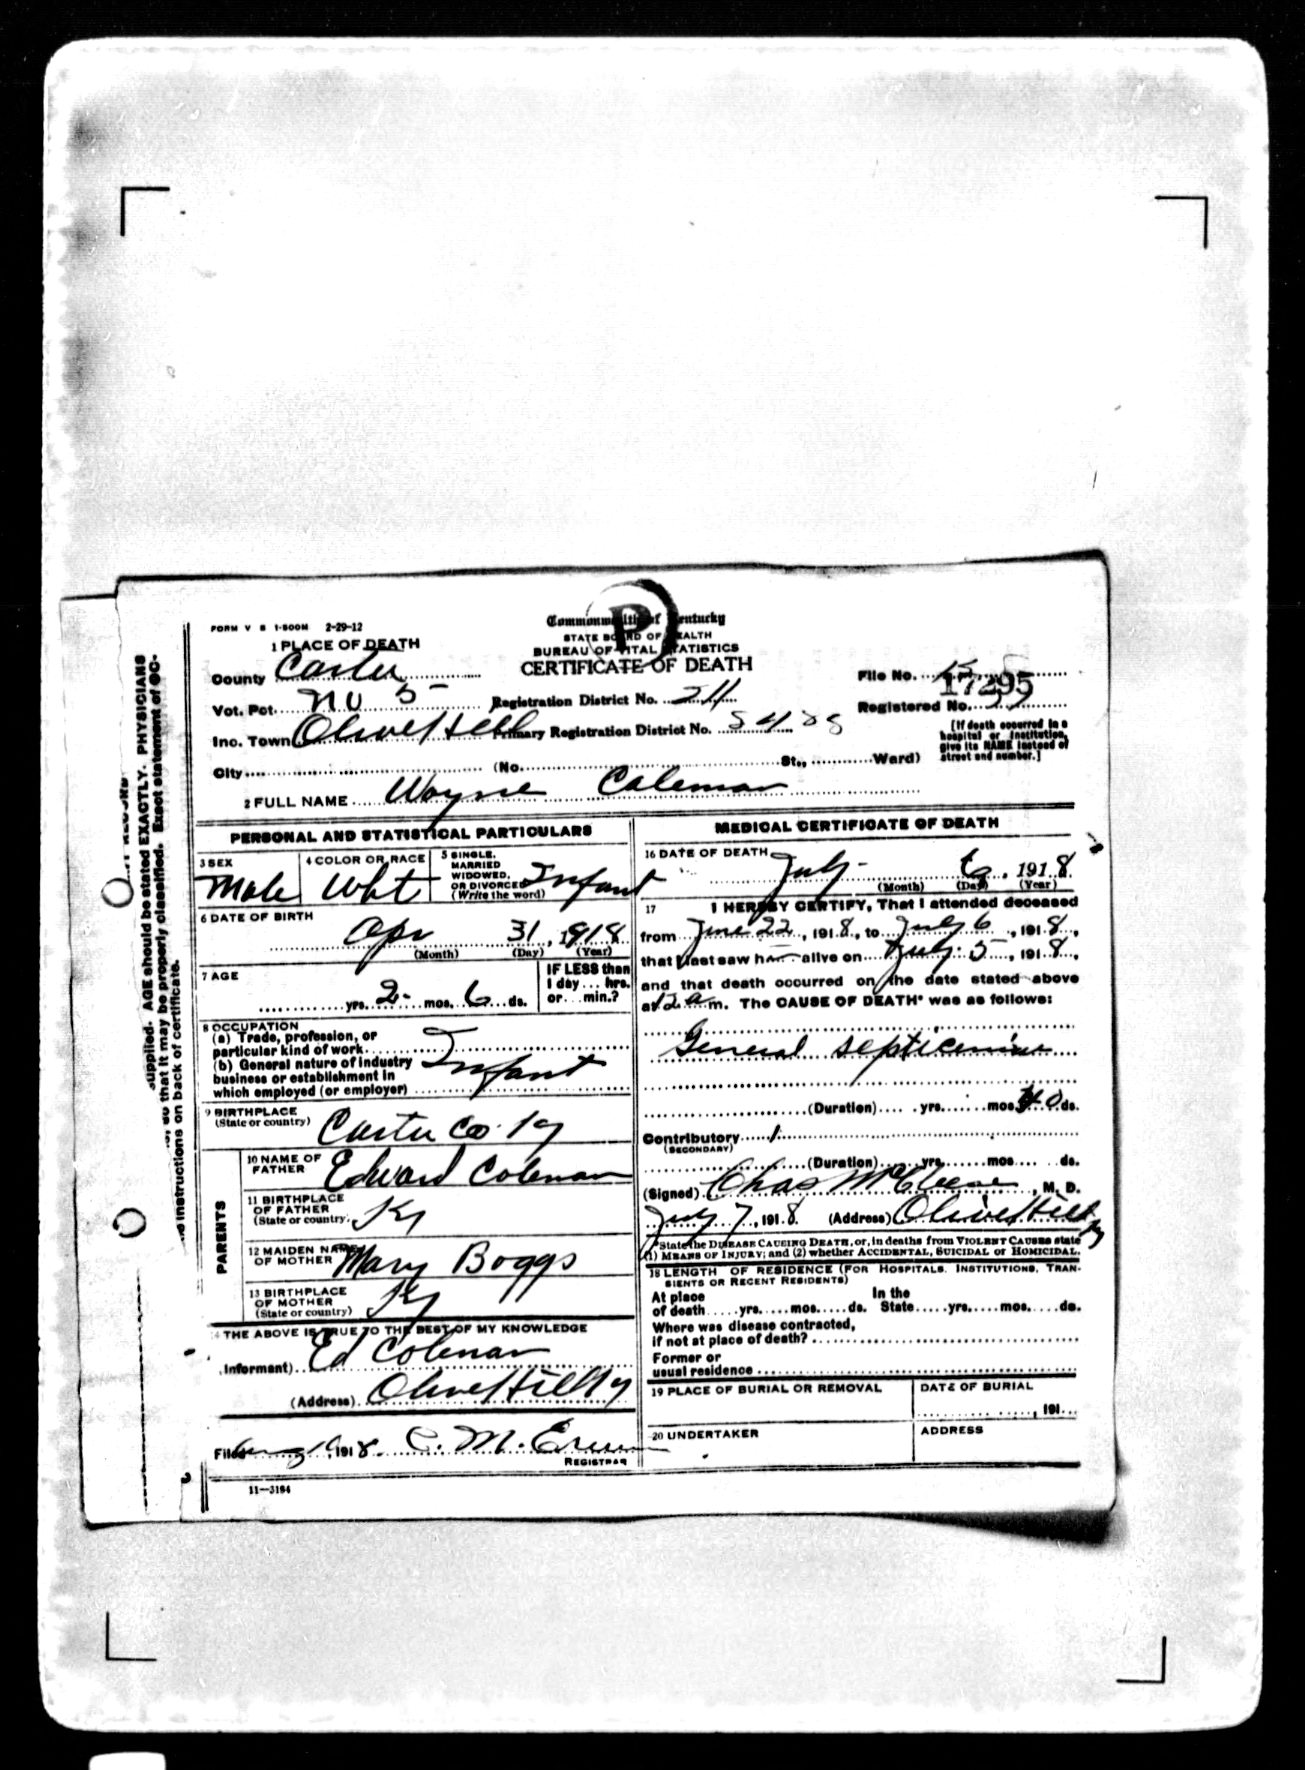 FORM V S 1-500M 2-29-12
Commonwealth of Kentucky
STATE BOARD OF HEALTH
BUREAU OF VITAL STATISTICS
CERTIFICATE OF DEATH
P
1 PLACE OF DEATH
County Carter
Vot. Pct. No 5
Registration District No. 211
Inc. Town Olive Hill
Primary Registration District No.
City (No. St., Ward)
File No. 17295
Registered No.
[If death occurred in a hospital or institution, give its NAME instead of street and number.]
2 FULL NAME Wayne Coleman
PERSONAL AND STATISTICAL PARTICULARS
3 SEX Male
4 COLOR OR RACE Wht
5 SINGLE, MARRIED WIDOWED, OR DIVORCED (Write the word) Infant
6 DATE OF BIRTH
Apr 31, 1918
(Month) (Day) (Year)
7 AGE
yrs. 2 mos. 6 ds.
IF LESS than 1 day... hrs. or... min.?
8 OCCUPATION
(a) Trade, profession, or particular kind of work
(b) General nature of industry business or establishment in which employed (or employer)
Infant
9 BIRTHPLACE
(State or country) Carter Co. Ky
PARENTS
10 NAME OF FATHER Edward Coleman
11 BIRTHPLACE OF FATHER (State or country) Ky
12 MAIDEN NAME OF MOTHER Mary Boggs
13 BIRTHPLACE OF MOTHER (State or country) Ky
14 THE ABOVE IS TRUE TO THE BEST OF MY KNOWLEDGE
Informant) Ed Coleman
(Address) Olive Hill Ky
Filed 1918 C. M.
REGISTRAR
11-3184
MEDICAL CERTIFICATE OF DEATH
16 DATE OF DEATH
July 6, 1918
(Month) (Day) (Year)
17 I HEREBY CERTIFY, That I attended deceased
from June 22, 1918, to July 6, 1918,
that I last saw h alive on July 5, 1918,
and that death occurred on the date stated above
at 12 a m. The CAUSE OF DEATH* was as follows:
General septicemia
(Duration) yrs. mos. ds.
Contributory
(SECONDARY)
(Duration) yrs. mos. ds.
(Signed) Chas McCleese, M. D.
July 7, 1918 (Address) Olive Hill Ky
*State the DISEASE CAUSING DEATH, or, in deaths from VIOLENT CAUSES state
(1) MEANS OF INJURY; and (2) whether ACCIDENTAL, SUICIDAL or HOMICIDAL.
18 LENGTH OF RESIDENCE (FOR HOSPITALS, INSTITUTIONS, TRANSIENTS OR RECENT RESIDENTS)
At place of death yrs. mos. ds. In the State yrs. mos. ds.
Where was disease contracted,
if not at place of death?
Former or
usual residence
19 PLACE OF BURIAL OR REMOVAL
DATE OF BURIAL
, 191
20 UNDERTAKER
ADDRESS
supplied. AGE should be stated EXACTLY. PHYSICIANS
so that it may be properly classified. Exact statement of OC-
instructions on back of certificate.